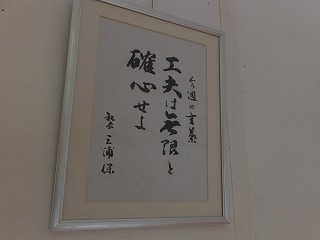 今週の言葉
工夫は無限と
確心せよ
社長 三浦 保